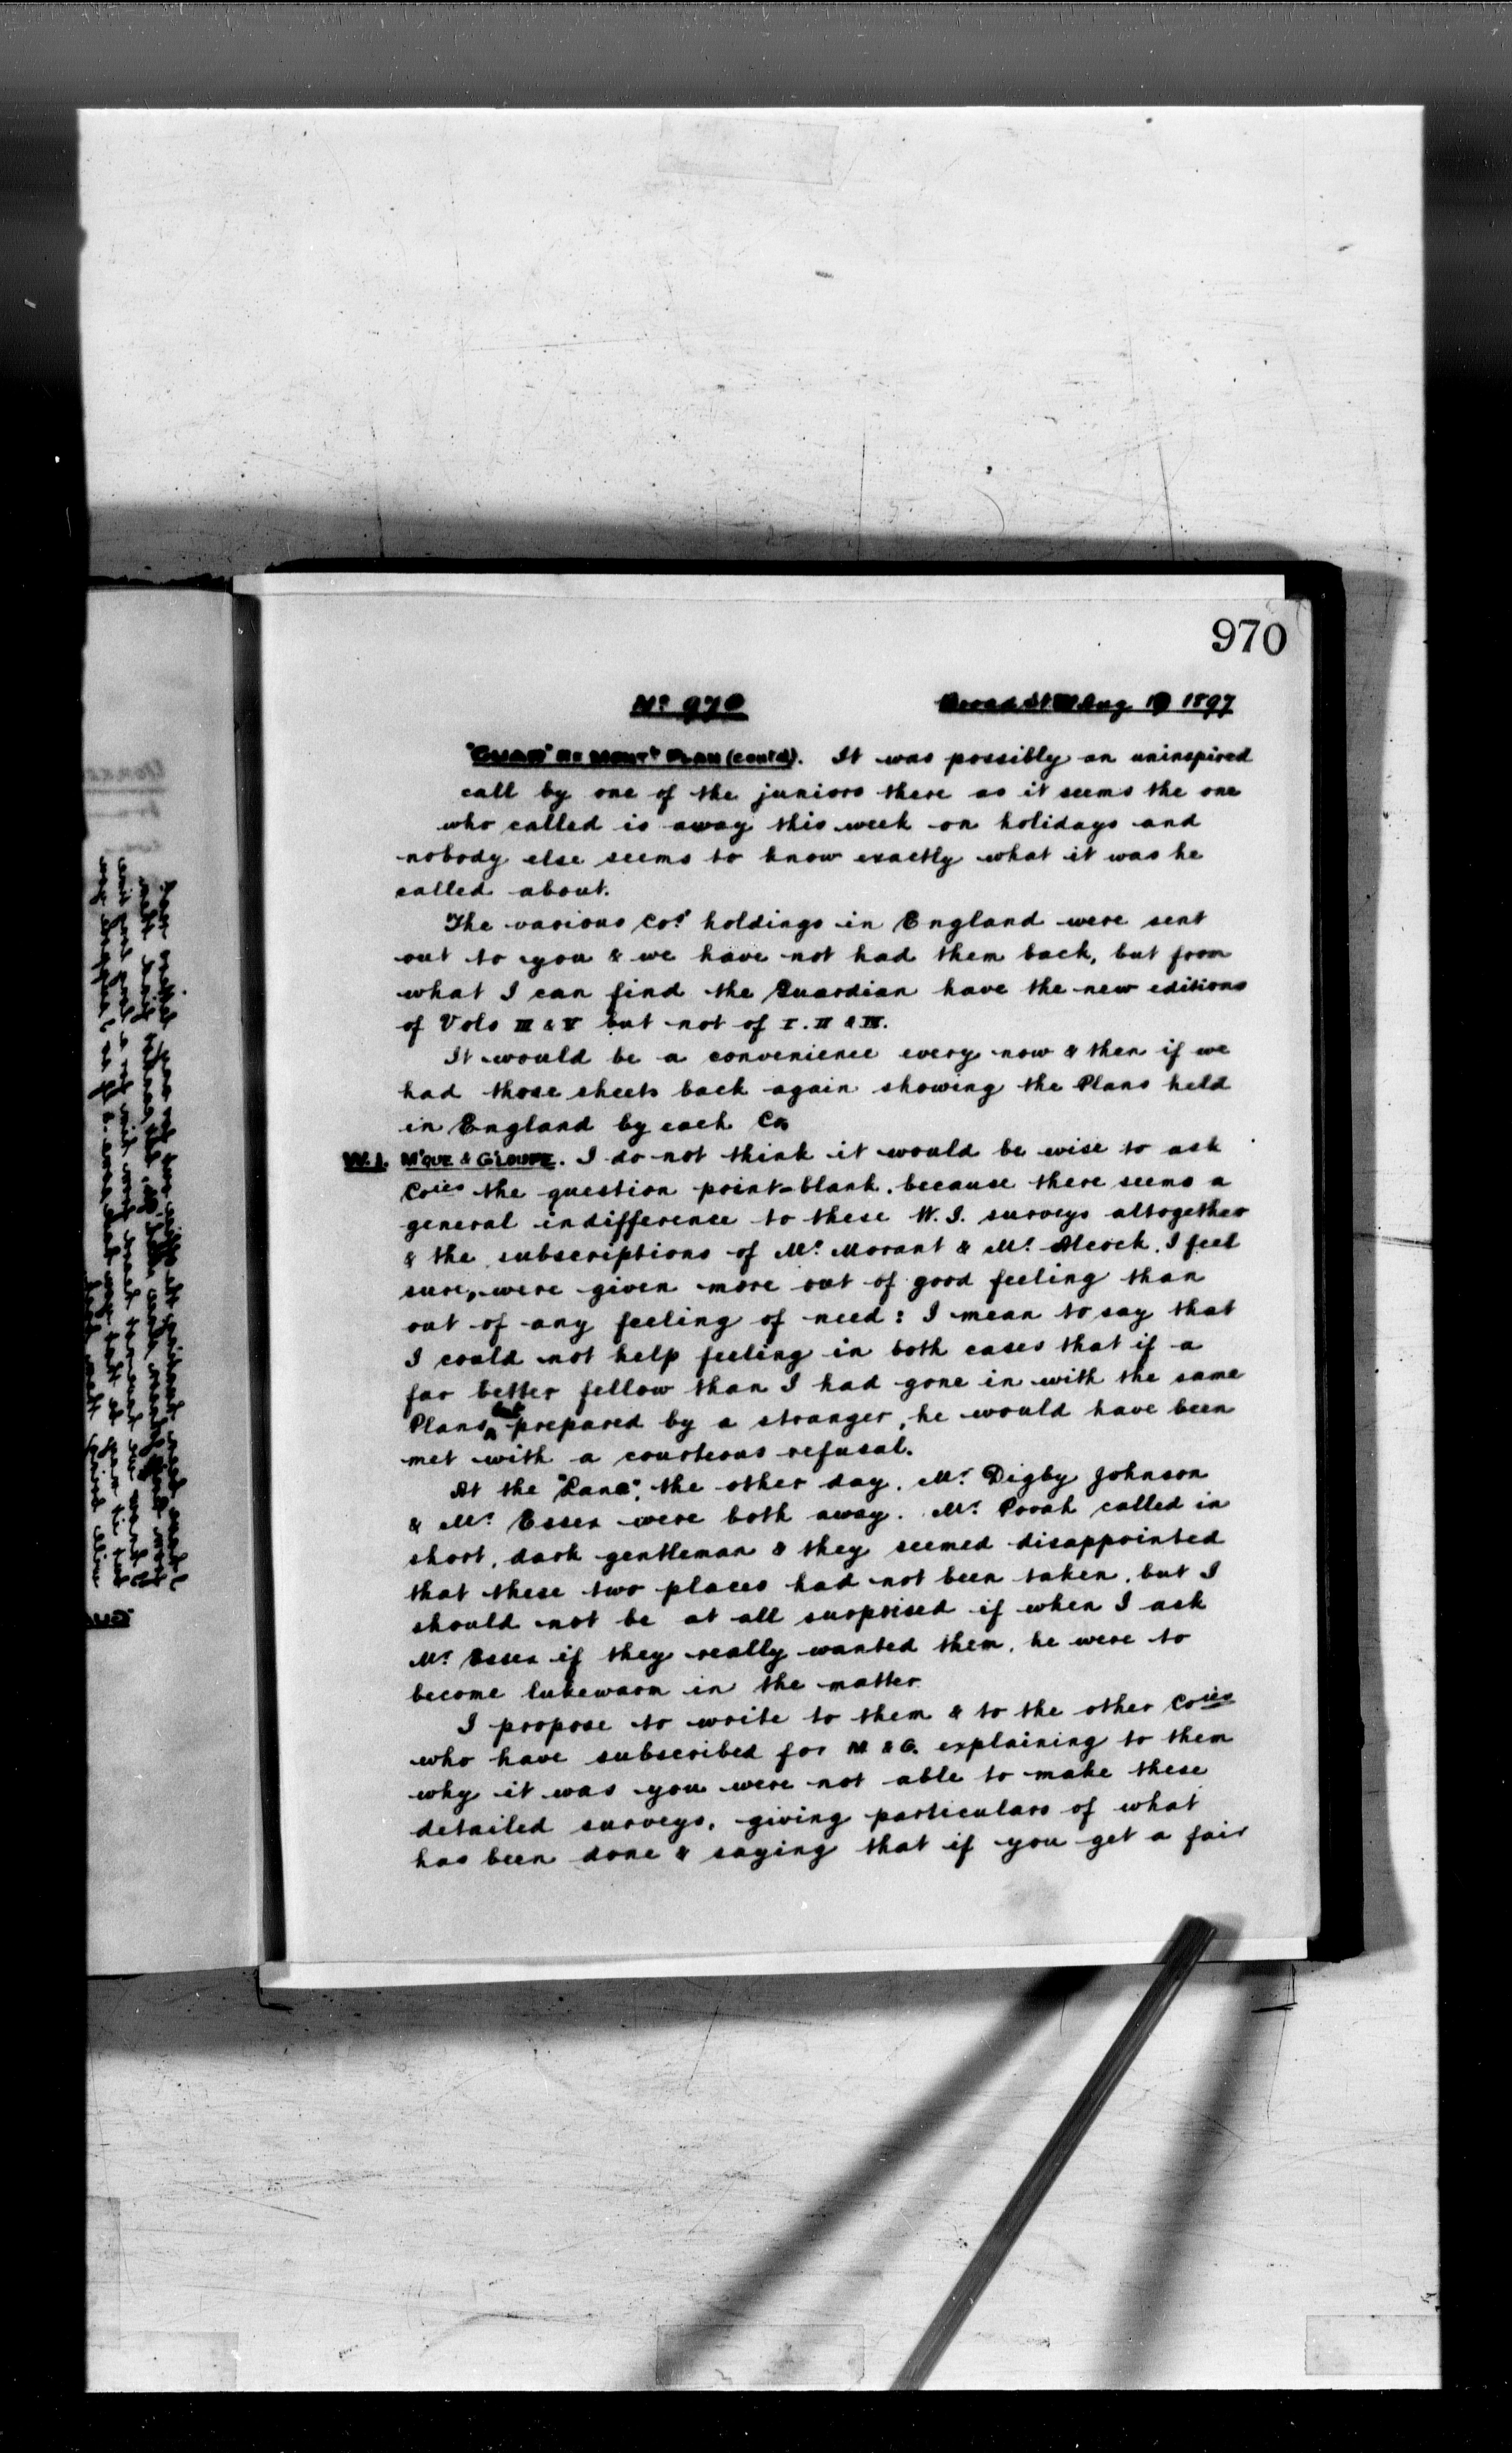 970
No 970 Broad St Aug 19 1897
"GUARD" RE MONTL PLAN (contd). It was possibly an uninspired
call by one of the juniors there as it seems the one
who called is away this week on holidays and
nobody else seems to know exactly what it was he
called about.
The various Cos' holdings in England were sent
out to you & we have not had them back, but from
what I can find the Guardian have the new editions
of Vols III & V but not of I. II & IV.
It would be a convenience every now & then if we
had those sheets back again showing the Plans held
in England by each Co.
W.I. M'QUE & G'LOUPE. I do not think it would be wise to ask
Coies the question point-blank, because there seems a
general indifference to these W.I. surveys altogether
& the subscriptions of Mr. Morant & Mr. Alcock, I feel
sure, were given more out of good feeling than
out of any feeling of need: I mean to say that
I could not help feeling in both cases that if a
far better fellow than I had gone in with the same
Plans but prepared by a stranger, he would have been
met with a courteous refusal.
At the "Lanc", the other day, Mr. Digby Johnson
& Mr. Essex were both away. Mr. called in
short, dark gentleman & they seemed disappointed
that these two places had not been taken, but I
should not be at all surprised if when I ask
Mr. Essex if they really wanted them, he were to
become lukewarm in the matter.
I propose to write to them & to the other Coies
who have subscribed for M & G. explaining to them
why it was you were not able to make these
detailed surveys, giving particulars of what
has been done & saying that if you get a fair